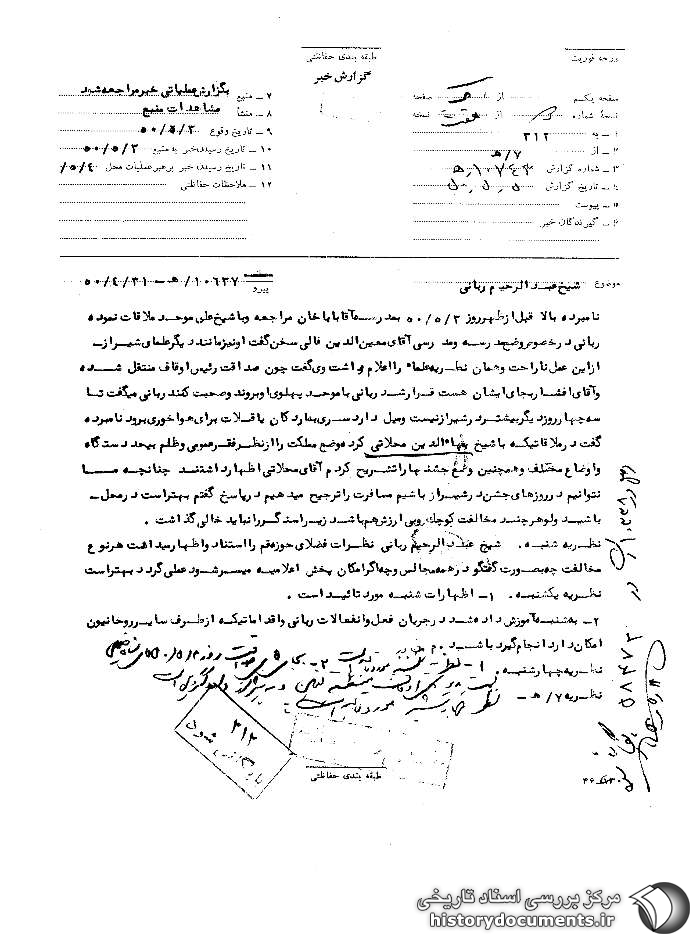 درجه فوریت
طبقه بندی حفاظتی
گزارش خبر
صفحه یکم از صفحه
نسخهٔ شماره از نسخه
۱ ـ به ۳۱۲
۲ ـ از ۷/ه
۳ ـ شماره گزارش
۴ ـ تاریخ گزارش
۵ ـ پیوست
۶ ـ گیرندگان خبر
۷ ـ منبع بگزارش عملیاتی خبر مراجعه شود
۸ ـ منشأ مشاهدات منبع
۹ ـ تاریخ وقوع ۵۰/۵/۲
۱۰ ـ تاریخ رسیدن خبر به منبع ۵۰/۵/۲
۱۱ ـ تاریخ رسیدن خبر برهبر عملیات محل ۵/۴/
۱۲ ـ ملاحظات حفاظتی
موضوع شیخ عبدالرحیم ربانی پیرو ۱۰۶۳۷/ه‍ ـ ۵۰/۴/۳۱
نامبرده بالا قبل از ظهر روز ۵۰/۵/۲ بمدرسه آقا باباخان مراجعه و با شیخ علی موحد ملاقات نموده
ربانی در خصوص وضع مدرسه و مدرسی آقای معین الدین فالی سخن گفت او نیز مانند دیگر علمای شیراز
از این عمل ناراحت و همان نظریه علماء را اعلام داشت وی گفت چون صداقت رئیس اوقاف منتقل شده
و آقای افشار بجای ایشان هست قرار شد ربانی با موحد پهلوی او بروند و صحبت کنند ربانی میگفت تا
سه چهار روز دیگر بیشتر در شیراز نیست و میل دارد سری بماردکان یا قلات برای هواخوری برود نامبرده
گفت در ملاقاتیکه با شیخ بهاءالدین محلاتی کردم وضع مملکت را از نظر فقر عمومی و ظلم بیحد دستگاه
و اوضاع مختلف و همچنین وضع جشنها را تشریح کردم آقای محلاتی اظهار داشتند چنانچه ما
نتوانیم در روزهای جشن در شیراز باشیم مسافرت را ترجیح میدهیم در پاسخ گفتم بهتر است در محل
باشید ولو هر چند مخالفت کوچک و بی ارزش هم باشد زیرا سنگر را نباید خالی گذاشت .
نظریه شنبه . شیخ عبدالرحیم ربانی نظرات فضلای حوزه قم را استناد و اظهار میداشت هر نوع
مخالفت چه بصورت گفتگو در همه مجالس و چه اگر امکان پخش اعلامیه میسر شود عملی گردد بهتر است
نظریه یکشنبه . ۱ ـ اظهارات شنبه مورد تائید است .
۲ ـ به شنبه آموزش داده شد در جریان فعل و انفعالات ربانی و اقداماتیکه از طرف سایر روحانیون
امکان دارد انجام گیرد باشد .
نظریه چهارشنبه . ۱ ـ نظریه
نظریه ۷/ه‍ ـ
۳۱۲
طبقه بندی حفاظتی
مرکز بررسی اسناد تاریخی
historydocuments.ir